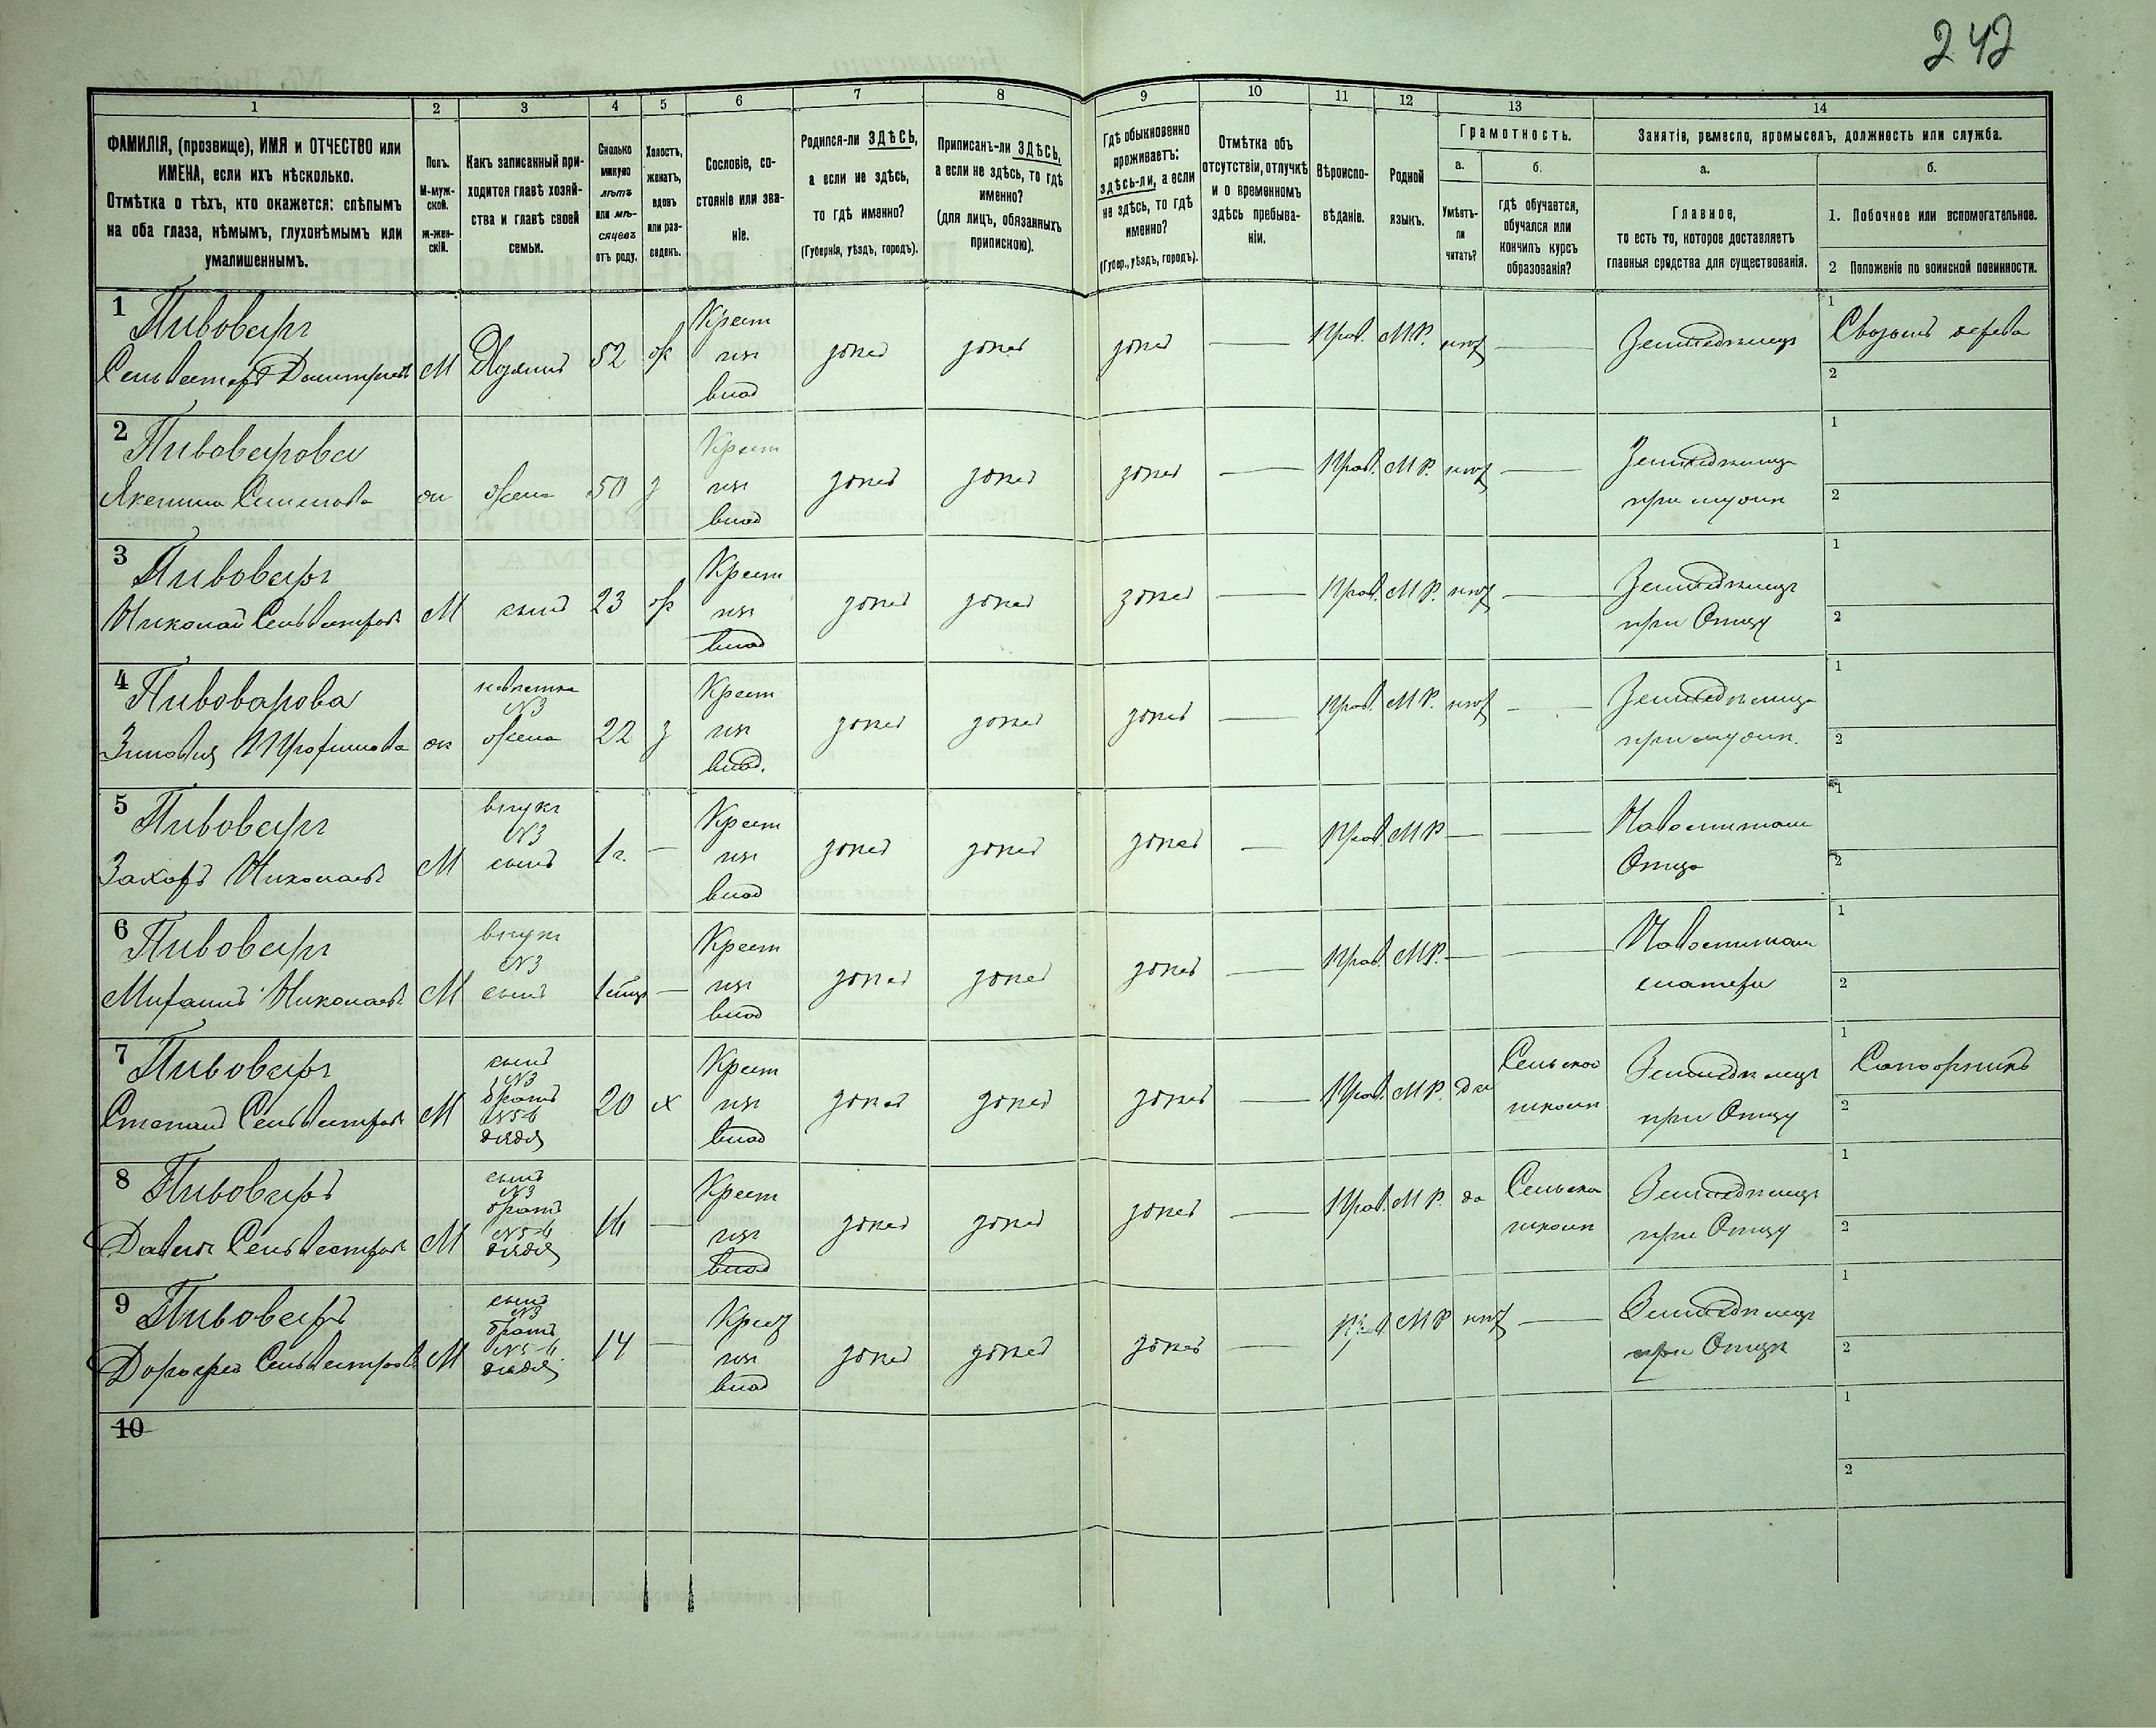 242
1 2 3 4 5 6 7 8 9 10 11 12 13 14
ФАМИЛІЯ, (прозвище), ИМЯ и ОТЧЕСТВО или
ИМЕНА, если ихъ нѣсколько.
Отмѣтка о тѣхъ, кто окажется: слѣпымъ
на оба глаза, нѣмымъ, глухонѣмымъ или
умалишеннымъ.
Полъ.
М-муж-
ской.
ж-жен-
скій.
Какъ записанный при-
ходится главѣ хозяй-
ства и главѣ своей
семьи.
Сколько
минуло
лѣтъ
или мѣ-
сяцевъ
отъ роду.
Холостъ,
женатъ,
вдовъ
или раз-
веденъ.
Сословіе, со-
стояніе или зва-
ніе.
Родился-ли ЗДѢСЬ,
а если не здѣсь,
то гдѣ именно?
(Губернія, уѣздъ, городъ).
Приписанъ-ли ЗДѢСЬ,
а если не здѣсь, то гдѣ
именно?
(для лицъ, обязанныхъ
припискою).
Гдѣ обыкновенно
проживаетъ:
здѣсь-ли, а если
не здѣсь, то гдѣ
именно?
(Губер., уѣздъ, городъ).
Отмѣтка объ
отсутствіи, отлучкѣ
и о временномъ
здѣсь пребыва-
ніи.
Вѣроиспо-
вѣданіе.
Родной
языкъ.
Грамотность.
а.
Умѣетъ-
ли
читать?
б.
гдѣ обучается,
обучался или
кончилъ курсъ
образованія?
Занятіе, ремесло, промыселъ, должность или служба.
а.
Главное,
то есть то, которое доставляетъ
главныя средства для существованія.
б.
1. Побочное или вспомогательное.
2 Положеніе по воинской повинности.
1 Пивоваръ
М 52 Крест
изъ
влад
здѣсь здѣсь здѣсь Прав. М.Р. нѣтъ
Земледѣлецъ
1
2
2 Пивоварова
жена 50 з Крест
изъ
влад
здѣсь здѣсь здѣсь Прав. М.Р. нѣтъ
Земледѣлица
при мужѣ
1
2
3 Пивоваръ
Николай Сельвестровъ
М сынъ 23 ж Крест
изъ
влад
здѣсь здѣсь здѣсь Прав. М.Р. нѣтъ
Земледѣлецъ
при Отцу
1
2
4 Пивоварова
Зиновія Трофимова
невѣстка
№3
жена
22 з Крест
изъ
влад.
здѣсь здѣсь здѣсь Прав. М.Р. нѣтъ
Земледѣлица
при мужѣ.
1
2
5 Пивоваръ
Захаръ Николаевъ
М
внукъ
№3
сынъ
1 г. Крест
изъ
влад
здѣсь здѣсь здѣсь Прав. М.Р
Отца
1
2
6 Пивоваръ
Николаевъ
М
внукъ
№3
сынъ
Крест
изъ
влад
здѣсь здѣсь здѣсь Прав. М.Р.
матери
1
2
7 Пивоваръ
Степанъ Сельвестровъ
М
сынъ
№3
братъ
№5-6
дядя
20 х Крест
изъ
влад
здѣсь здѣсь здѣсь Прав. М.Р. да
Сельской
школѣ
Земледѣлецъ
при Отцу
1 Сапожникъ
2
8 Пивоваръ
Сельвестровъ
М
сынъ
№3
братъ
№5-6
дядя
16 Крест
изъ
влад
здѣсь здѣсь здѣсь Прав. М.Р. да
школѣ
Земледѣлецъ
при Отцу
1
2
9 Пивоваръ
Дорофей Сельвестровъ
М
сынъ
№3
братъ
№5-6
дядя
14
изъ
влад
здѣсь здѣсь здѣсь М.Р нѣтъ
Земледѣлецъ
при
1
2
10
1
2